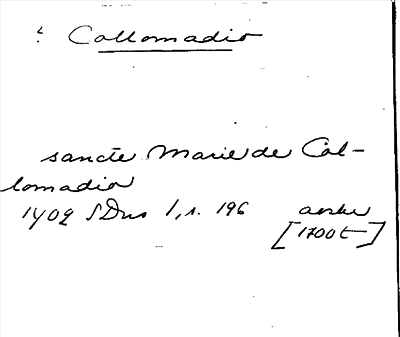 Collomadio
sancte Marie de Col-
lomadio
1409 SDns 1, s. 196
[1700t]